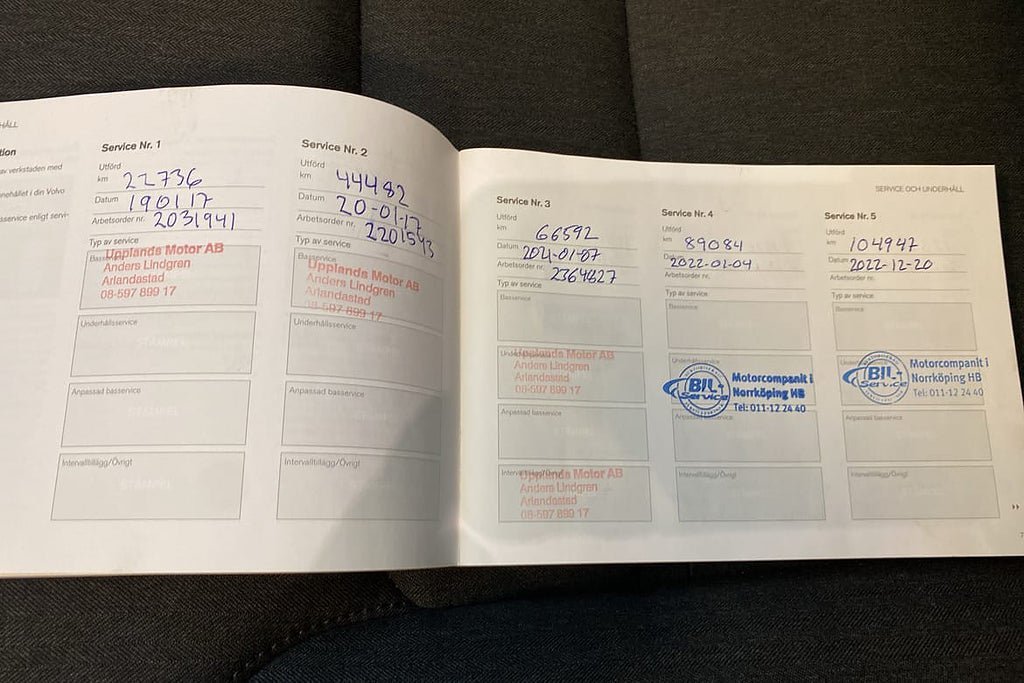 HÅLL
tion
av verkstaden med
nnehållet i din Volvo
sservice enligt servi-
Service Nr. 1
Utförd
km 22736
Datum 190117
Arbetsorder nr. 2031941
Typ av service
Basservice
Upplands Motor AB
Anders Lindgren
Arlandastad
08-597 899 17
Underhållsservice
STÄMPEL
Anpassad basservice
STÄMPEL
Intervalltillägg/Övrigt
STÄMPEL
Service Nr. 2
Utförd
km 44482
Datum 20-01-17
Arbetsorder nr. 2201543
Typ av service
Basservice
Upplands Motor AB
Anders Lindgren
Arlandastad
08-597 899 17
Underhållsservice
Anpassad basservice
Intervalltillägg/Övrigt
SERVICE OCH UNDERHÅLL
Service Nr. 3
Utförd
km 66592
Datum 2021-01-07
Arbetsorder nr. 2364827
Typ av service
Basservice
Underhållsservice
Upplands Motor AB
Anders Lindgren
Arlandastad
08-597 899 17
Anpassad basservice
Intervalltillägg/Övrigt
Upplands Motor AB
Anders Lindgren
Arlandastad
08-597 899 17
Service Nr. 4
Utförd
km 89084
Datum 2022-01-04
Arbetsorder nr.
Typ av service
Basservice
Underhållsservice
BIL+
Service
Motorcompanit i
Norrköping HB
Tel: 011-12 24 40
Anpassad basservice
Intervalltillägg/Övrigt
Service Nr. 5
Utförd
km 104947
Datum 2022-12-20
Arbetsorder nr.
Typ av service
Basservice
BIL+
Service
Motorcompanit i
Norrköping HB
Tel: 011-12 24 40
Anpassad basservice
Intervalltillägg/Övrigt